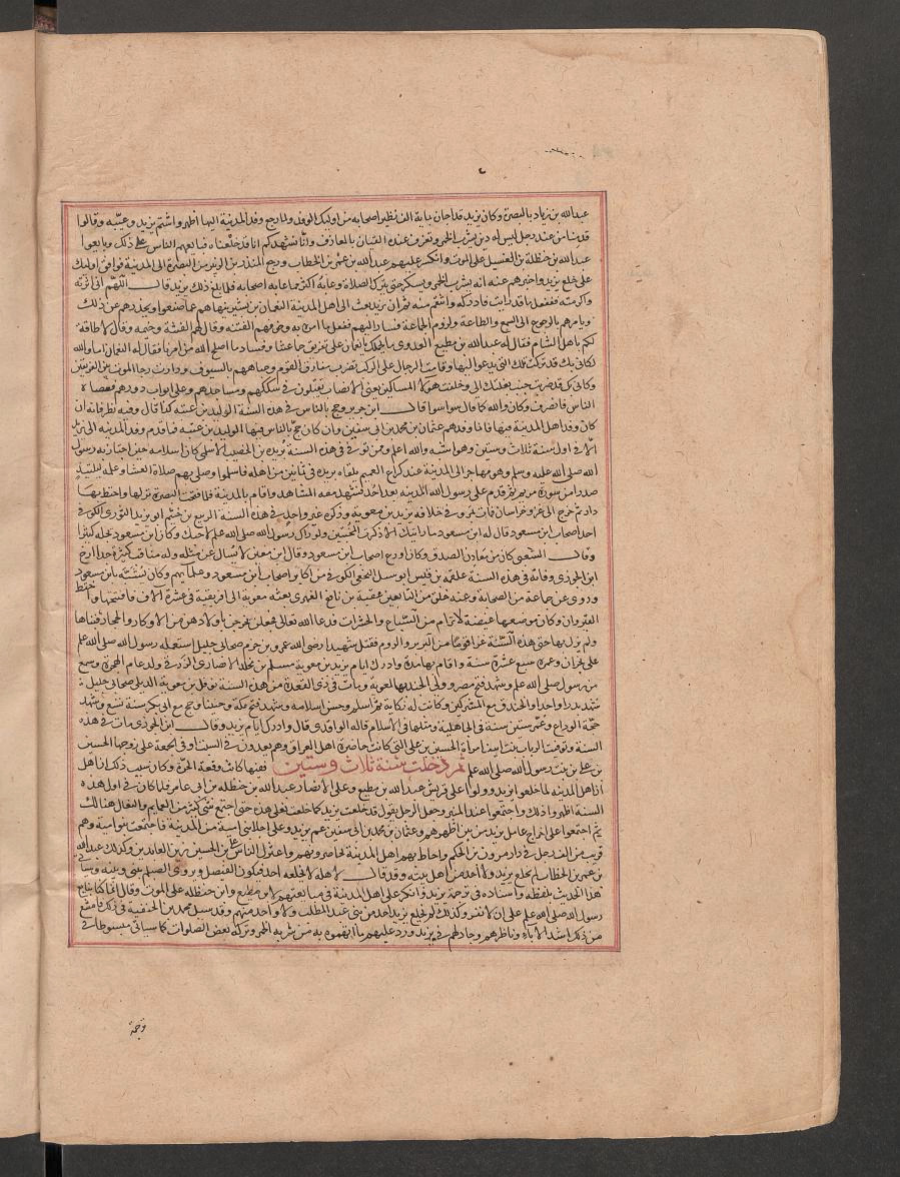 عبد الله بن زياد بالبصرة وكان يزيد قد اجازه بماية الف نظير اصحابه من اوليك الوفد ولما رجع وفد المدينة اليها اظهروا شتم يزيد وعيبه وقالوا
قدمنا من عند رجل ليس له دين يشرب الخمر وتعزف عنده القيان بالمعازف وانا نشهدكم انا قد خلعناه فبايعهم الناس على ذلك وبايعوا
عبد الله بن حنظلة بن الغسيل على الموت وانكر عليهم عبد الله بن عمر بن الخطاب ورجع المنذر بن الزبير من البصرة الى المدينة فوافق اوليك
على خلع يزيد واخبرهم عنه انه يشرب الخمر ويسكر حتى يترك الصلاة وعابه اكثر مما عابه اصحابه فلما بلغ ذلك يزيد قال اللهم اني اثرته
واكرمته ففعل ما قد رايت فادركه وانتقم منه ثم ان يزيد بعث الى اهل المدينة النعمان بن بشير ينهاهم عما صنعوا ويحذرهم غب ذلك
ويامرهم بالرجوع الى السمع والطاعة ولزوم الجماعة فسار اليهم ففعل ما امره به وخوفهم الفتنة وقال لهم الفتنة وخيمة وقال لا طاقة
لكم باهل الشام فقال له عبد الله بن مطيع العدوي ما يحملك يا نعمان على تفريق جماعتنا وفساد ما اصلح الله من امرنا فقال له النعمان اما والله
لكاني بك قد تركت تلك التي تدعوا اليها وقامت الرجال على الركب تضرب مفارق القوم وجباههم بالسيوف ودارت رحا الموت بين الفريقين
وكاني بك قد ضربت جنب بغلتك الى وخلفت هولا المساكين يعني الانصار يقتلون في سككهم ومساجدهم وعلى ابواب دورهم فعصاه
الناس فانصرف وكان والله كما قال سوا سوا قال ابن جرير وحج بالناس في هذه السنة الوليد بن عتبة كذا قال وفيه نظر فانه ان
كان وفد اهل المدينة فيها فانما وفدهم عثمان بن محمد بن ابي سفين وان كان حج بالناس فيها الوليد بن عتبة فما قدم وفد المدينة الى يزيد
الا في اول سنة ثلاث وستين وهو اشبه والله اعلم وممن توفي في هذه السنة بريدة بن الحصيب الاسلمي كان اسلامه حين اجتاز به رسول
الله صلى الله عليه وسلم وهو مهاجر الى المدينة عند كراع الغميم تلقاه بريدة في ثمانين من اهله فاسلموا وصلى بهم صلاة العشا وعلمه ليلتيذ
صدرا من سورة مريم ثم قدم على رسول الله المدينة بعد احد فشهد معه المشاهد واقام بالمدينة فلما فتحت البصرة نزلها واختط بها
دارا ثم خرج الى غزو خراسان فمات بمرو في خلافة يزيد بن معوية وذكره غير واحد في هذه السنة الربيع بن خثيم ابو يزيد الثوري الكوفي
احد اصحاب ابن مسعود قال له ابن مسعود ما رايتك الا ذكرت المخبتين ولو راك رسول الله صلى الله علم لاحبك وكان ابن مسعود يجله كثيرا
وقال الشعبي كان من معادن الصدق وكان اورع اصحاب ابن مسعود وقال ابن معين لا يسال عن مثله وله مناقب كثيرة جدا ارخ
ابن الجوزي وفاته في هذه السنة علقمة بن قيس ابو شبل النخعي الكوفي من اكابر اصحاب ابن مسعود وعلمايهم وكان يشبه بابن مسعود
وروى عن جماعة من الصحابة وعنه خلق من التابعين عقبة بن نافع الفهري بعثه معوية الى افريقية في عشرة الاف فافتتحها واختط
القيروان وكان موضعها غيضة لا ترام من السباع والحشرات فدعا الله تعالى فجعلن يخرجن باولادهن من الاوكار والجحار فبناها
ولم يزل بها حتى هذه السنة غزا قوما من البربر والروم فقتل شهيدا رضي الله عمرو بن حزم صحابي جليل استعمله رسول الله صلى الله علم
على نجران وعمره سبع عشرة سنة واقام بها مدة وادرك ايام يزيد بن معوية مسلم بن مخلد الانصاري الزرقي ولد عام الهجرة وسمع
من رسول صلى الله علم وشهد فتح مصر وولى الجند بها لمعوية ومات في ذي القعدة من هذه السنة نوفل بن معوية الديلي صحابي جليل
شهد بدرا واحدا والخندق مع المشركين وكانت له نكاية ثم اسلم وحسن اسلامه وشهد فتح مكة وحنينا وحج مع ابي بكر سنة تسع وشهد
حجة الوداع وعمر ستين سنة في الجاهلية ومثلها في الاسلام قاله الواقدي قال وادرك ايام يزيد وقال ابن الجوزي مات في هذه
السنة وتوفيت الرباب بنت انيف امراة الحسين بن علي التي كانت حاضرة اهل العراق وهم يعدون في السبت او في الجمعة على زوجها الحسين
بن علي بن بنت رسول الله صلى الله علم ثم دخلت سنة ثلاث وستين ففيها كانت وقعة الحرة وكان سبب ذلك ان اهل
ان اهل المدينة لما خلعوا يزيد وولوا على قريش عبد الله بن مطيع وعلى الانصار عبد الله بن حنظله بن ابي عامر فلما كان في اول هذه
السنة اظهروا ذلك واجتمعوا عند المنبر وجعل الرجل يقول قد خلعت يزيد كما خلعت نعلي هذه حتى اجتمع شي كثير من العمايم والنعال هنالك
ثم اجتمعوا على اخراج عامل يزيد من بين اظهرهم وهو عثمان بن محمد بن ابي سفين عم يزيد وعلى اجلا بني امية من المدينة فاجتمعت بنو امية وهم
قريب من الف رجل في دار مرون بن الحكم واحاط بهم اهل المدينة يحاصرونهم واعتزل الناس علي بن الحسين زين العابدين وكذلك عبد الله
بن عمر بن الخطاب لم يخلع يزيد ولا احد من اهل بيته وقد قال لاهله لا يخلعه احد فيكون الفيصل ويروى الصيلم بيني وبينه وسياتي
هذا الحديث بلفظه واسناده في ترجمة يزيد وانكر على اهل المدينة في مبايعتهم لابن مطيع وابن حنظله على الموت وقال انما كنا نبايع
رسول الله صلى الله علم على ان لا نفر وكذلك لم يخلع يزيد احد من بني عبد المطلب ولا واحد منهم وقد سيل محمد بن الحنفية في ذلك فامتنع
من ذلك اشد الاباء وناظرهم وجادلهم في يزيد ورد عليهم ما اتهموه به من شربه الخمر وتركه بعض الصلوات كما سياتي مبسوطا في
ترجمة